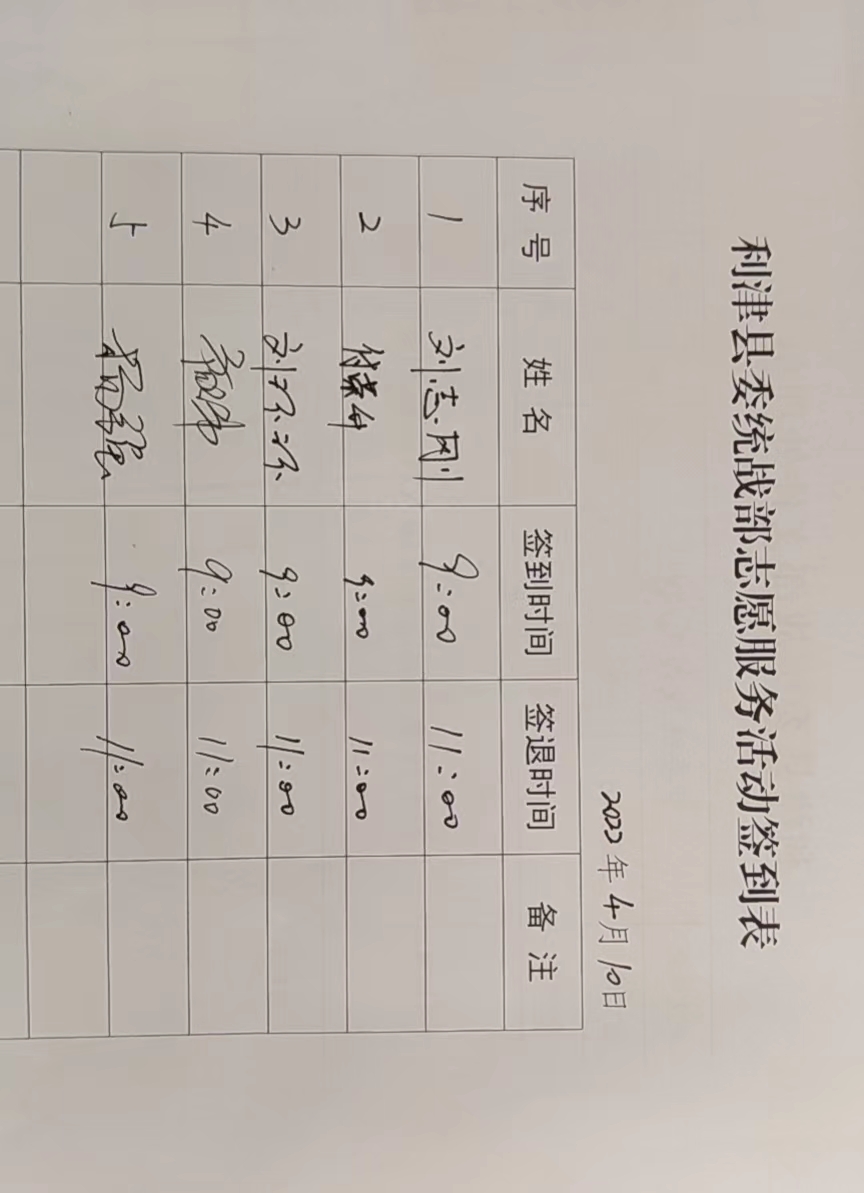 利津县委统战部志愿服务活动签到表
2022年4月10日
序号 姓名 签到时间 签退时间 备注
1 刘志刚 9:00 11:00
2 9:00 11:00
3 刘 9:00 11:00
4 9:00 11:00
5 9:00 11:00